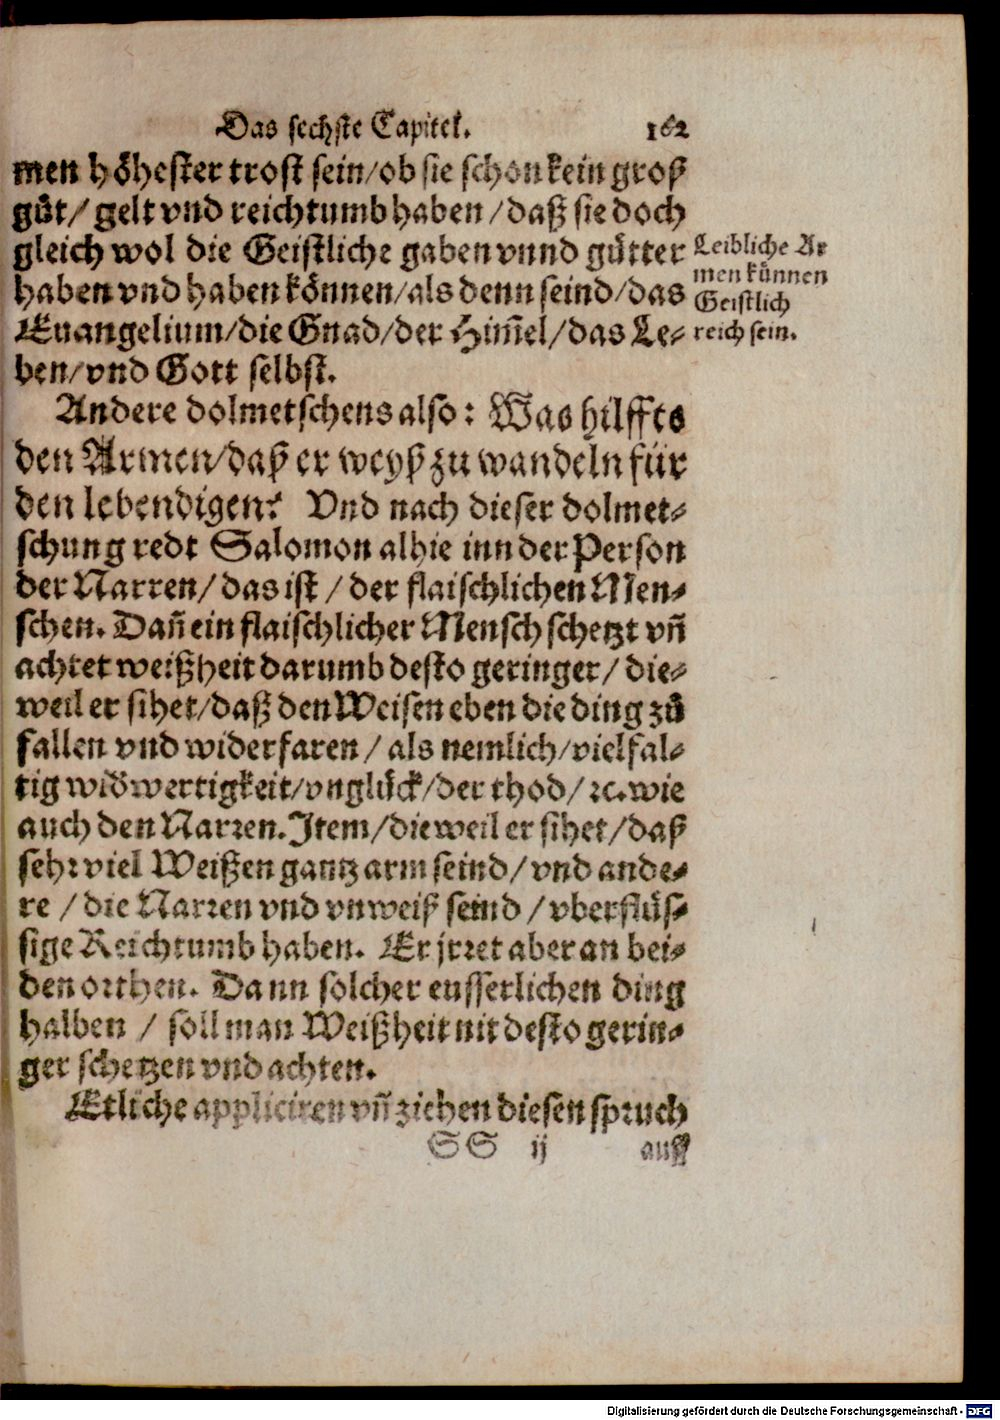 Das sechste Capitel. 162
men höhester trost sein/ob sie schon kein groß
gůt/ gelt vnd reichtumb haben /daß sie doch
gleich wol die Geistliche gaben vnnd gůtter
haben vnd haben können/als denn seind/das
Euangelium/die Gnad/der Him̃el/das Le-
ben/vnd Gott selbst.
Leibliche Ar
men künnen
Geistlich
reich sein.
Andere dolmetschens also: Was hilffts
den Armen/daß er weyß zu wandeln für
den lebendigen? Vnd nach dieser dolmet-
schung redt Salomon alhie inn der Person
der Narren/ das ist / der flaischlichen Men-
schen. Dañ ein flaischlicher Mensch schetzt vñ
achtet weißheit darumb desto geringer/ die-
weil er sihet/daß den Weisen eben die ding zů
fallen vnd widerfaren / als nemlich/vielfal-
tig widwertigkeit/vnglück/der thod/ ꝛc.wie
auch den Narꝛen.Item/dieweil er sihet/daß
sehꝛ viel Weißen gantz arm seind/ vnd ande-
re / die Narꝛen vnd vnweiß seind / vberflüs-
sige Reichtumb haben. Er jrꝛet aber an bei-
den oꝛthen. Dann solcher eusserlichen ding
halben / soll man Weißheit nit desto gerin-
ger schetzen vnd achten.
Etliche appliciren vñ ziehen diesen spꝛuch
SS ij auff
Digitalisierung gefördert durch die Deutsche Forschungsgemeinschaft - DFG